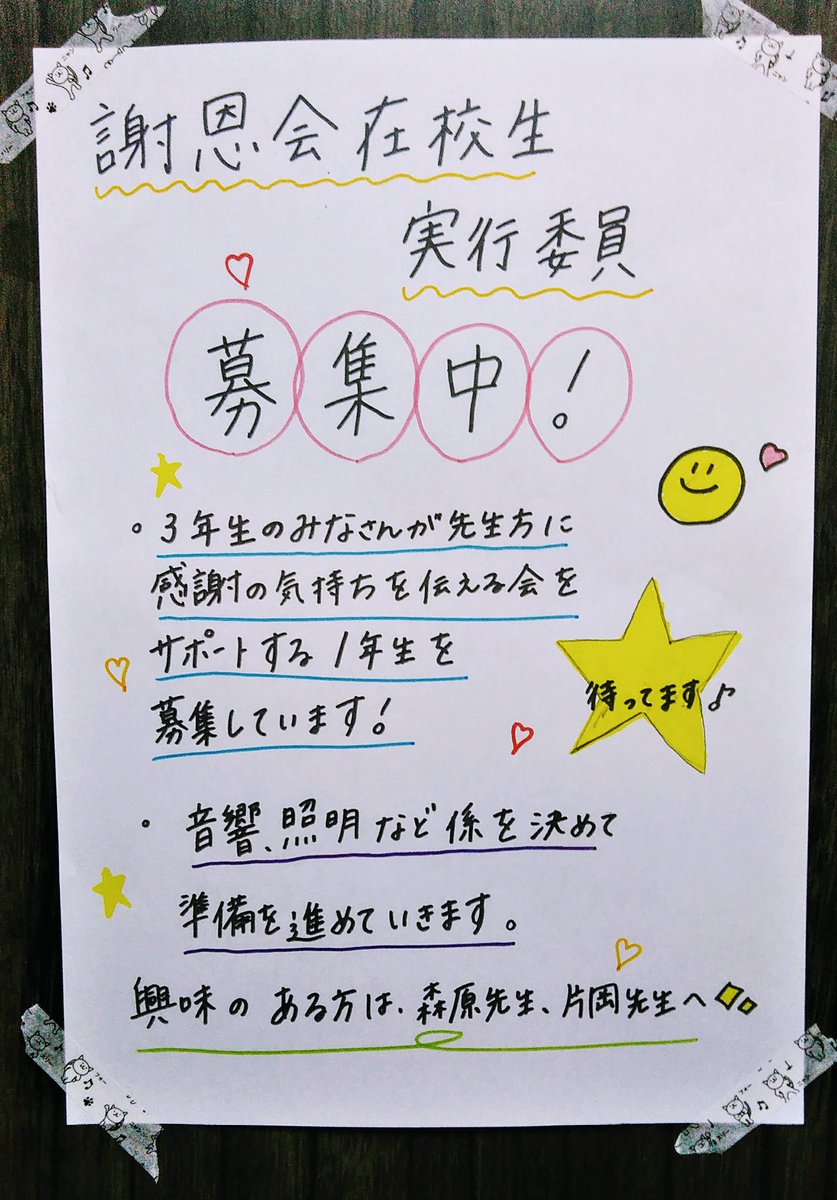 謝恩会在校生
実行委員
募集中!
。3年生のみなさんが先生方に
感謝の気持ちを伝える会を
サポートする1年生を
募集しています!
待ってます♪
。音響、照明など係を決めて
準備を進めていきます。
興味のある方は、森原先生、片岡先生へ